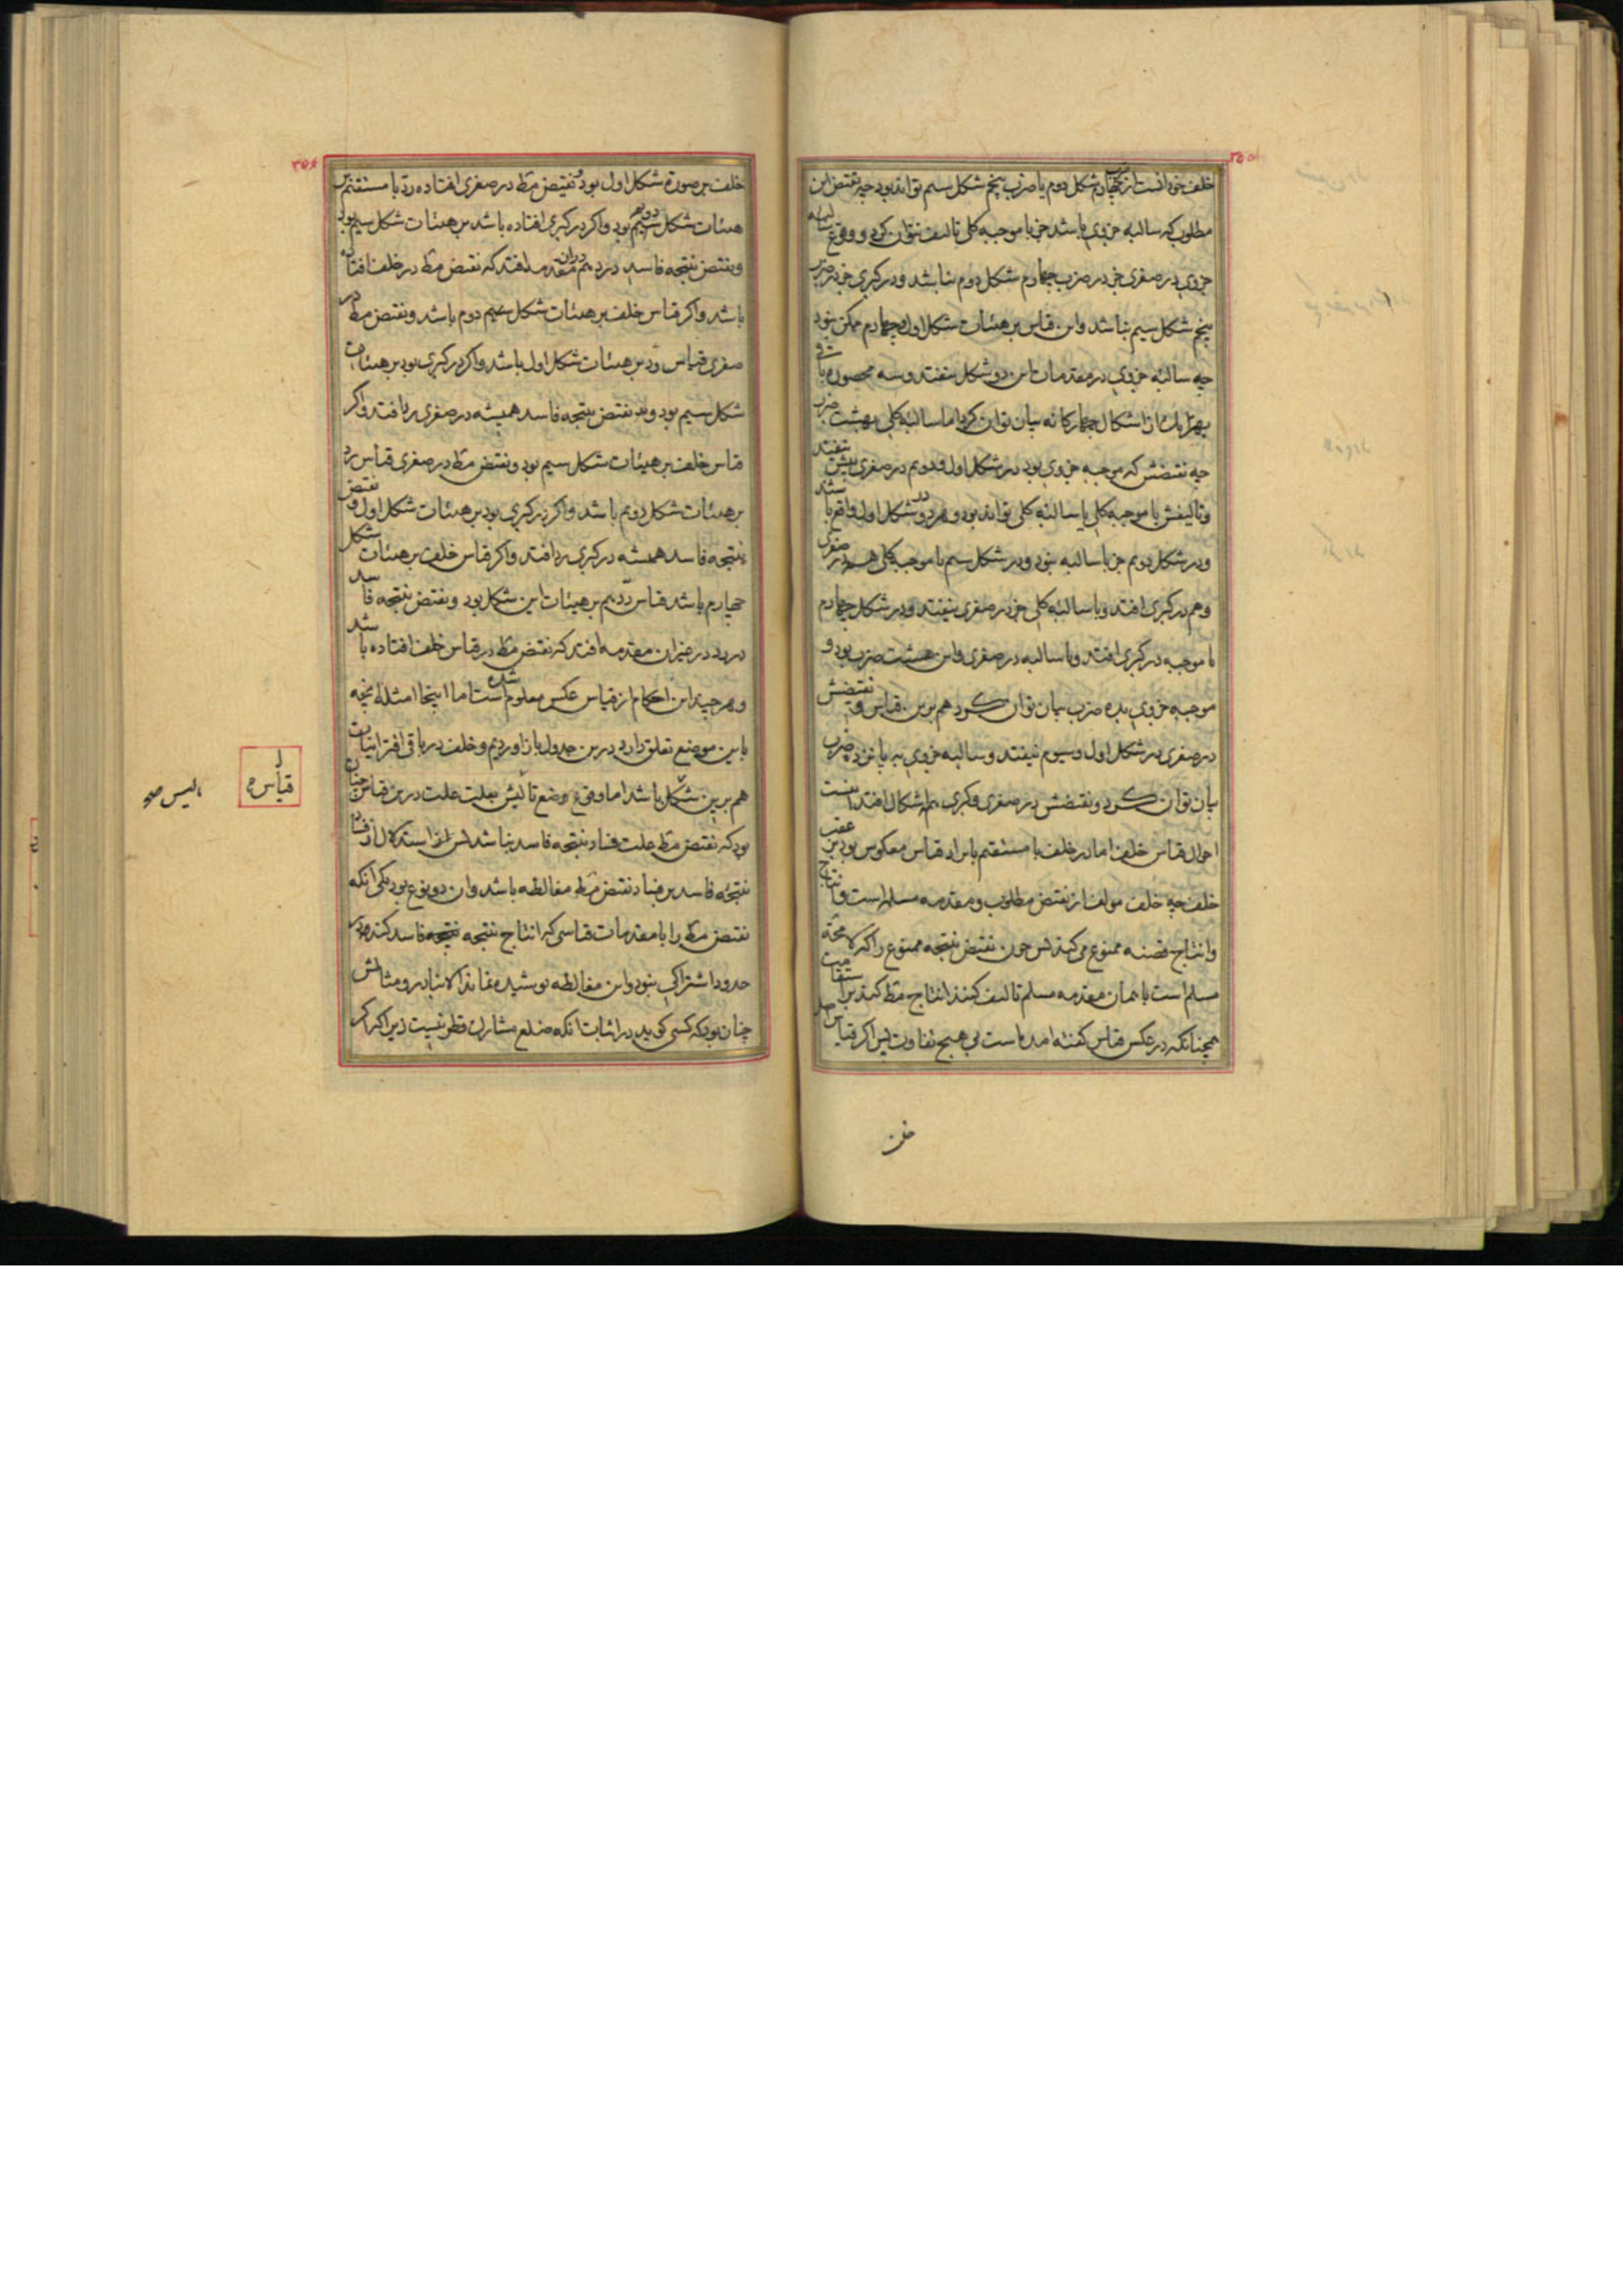 خلف خود انست از ضرب چهارم شکل دوم یا ضرب پنجم شکل سیم تواند بود چه نقیض این
مطلوب که سالبه جزوی باشد جز با موجبه کلی تالیف نتوان کرد و وقوع سالبه
جزوی در صغری جز در ضرب چهارم شکل دوم نباشد و در کبری جز در ضرب
پنجم شکل سیم نباشد و این قیاس بر هیئات شکل اول و چهارم ممکن نبود
چه سالبه جزوی در مقدمات این دو شکل نیفتد و سه محصوره باقی
بهر یک از اشکال چهارگانه بیان توان کرد اما سالبه کلی بهشت ضرب
چه نقیضش که موجبه جزوی بود در شکل اول و دویم در صغری بیش نیفتد
و تالیفش با موجبه کلی یا سالبه کلی تواند بود و هر دو در شکل اول واقع باشد
و در شکل دویم جز با سالبه نبود و در شکل سیم با موجبه کلی هم در صغری
و هم در کبری افتد و با سالبه کلی جز در صغری نیفتد و در شکل چهارم
با موجبه در کبری افتد و با سالبه در صغری و این هشت ضرب بود و
موجبه جزوی بده ضرب بیان توان کرد هم برین قیاس و نقیضش
در صغری در شکل اول و سیوم نیفتد و سالبه جزوی به پانزده ضرب
بیان توان کرد و نقیضش در صغری و کبری همه اشکال افتد اینست
احوال قیاس خلف اما در خلف با مستقیم باید قیاس معکوس بود بر عقب
خلف چه خلف مولف از نقیض مطلوب و مقدمه مسلم است و انتاج
و انتاج قضیه ممنوع می کند پس چون نقیض نتیجه ممنوع را که لامحة
مسلم است با همان مقدمه مسلم تالیف کنند انتاج مط کند بر استقامت
همچنانکه در عکس قیاس گفته امده است بی هیچ تفاوت پس اگر قیاس اصل
خلف
خلف بر صورة شکل اول بود و نقیض مط در صغری افتاده رد با مستقیم بر
هیئات شکل دویم بود و اگر در کبری افتاده باشد بر هیئات شکل سیم بود
و نقیض نتیجه فاسد در رد هم در ان مقدمه افتد که نقیض مط در خلف افتاده
باشد و اگر قیاس خلف بر هیئات شکل دوم باشد و نقیض مط در
صغری قیاس رد بر هیئات شکل اول باشد و اگر در کبری بود بر هیئات
شکل سیم بود و نقیض نتیجه فاسد همیشه در صغری رد افتد و اگر
قیاس خلف بر هیئات شکل سیم بود و نقیض مط در صغری قیاس رد
بر هیئات شکل دویم باشد و اگر در کبری بود بر هیئات شکل اول و نقیض
نتیجه فاسد همیشه در کبری رد افتد و اگر قیاس خلف بر هیئات شکل
چهارم باشد قیاس رد هم بر هیئات این شکل بود و نقیض نتیجه فاسد
در رد در غیر ان مقدمه افتد که نقیض مط در قیاس خلف افتاده باشد
و هر چند این احکام از قیاس عکس معلوم شده است اما اینجا امثله انچه
باین موضع تعلق دارد درین جدول باز اوردیم و خلف در باقی اقترانیات
هم برین شکل باشد اما وقوع وضع ما لیس بعلت علت درین قیاس چنان
بود که نقیض مط علت فساد نتیجه فاسد نباشد پس استدلال از فساد
نتیجه فاسد بر فساد نقیض مط مغالطه باشد و ان دو نوع بود یکی انکه
نقیض مط را با مقدمات قیاسی که انتاج نتیجه فاسد کند در
حدود اشتراکی نبود و این مغالطه پوشیده نماند الا بنادر و مثالش
چنان بود که کسی گوید در اثبات انکه ضلع مشارک قطر نیست زیرا که اگر
قیاس ه